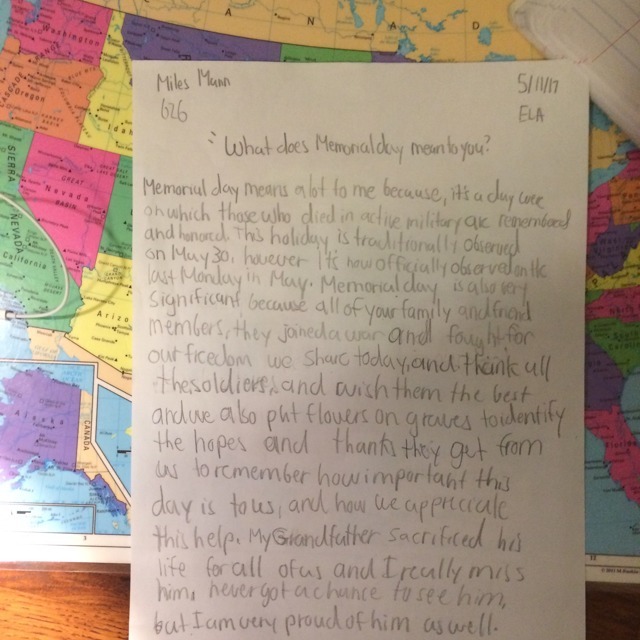 Miles Mann
5/11/17
626
ELA
"What does Memorial day mean to you?
Memorial day means a lot to me because, it's a day
on which those who died in active military are remembered
and honored. This holiday is traditionally observed
on May 30, however it's now officially observed on the
last Monday in May. Memorial day is also very
significant because all of your family and friend
members, they joined a war and fought for
our freedom we share today, and thank all
the soldiers, and wish them the best
and we also put flowers on graves to identify
the hopes and thanks they get from
us to remember how important this
day is to us, and how we appreciate
this help. My Grandfather sacrificed his
life for all of us and I really miss
him, never got a chance to see him,
but I am very proud of him as well.
Washington
Oregon
Idaho
Nevada
GREAT
BASIN
SIERRA
NEVADA
California
Arizo
Alaska
CANADA
A N A D